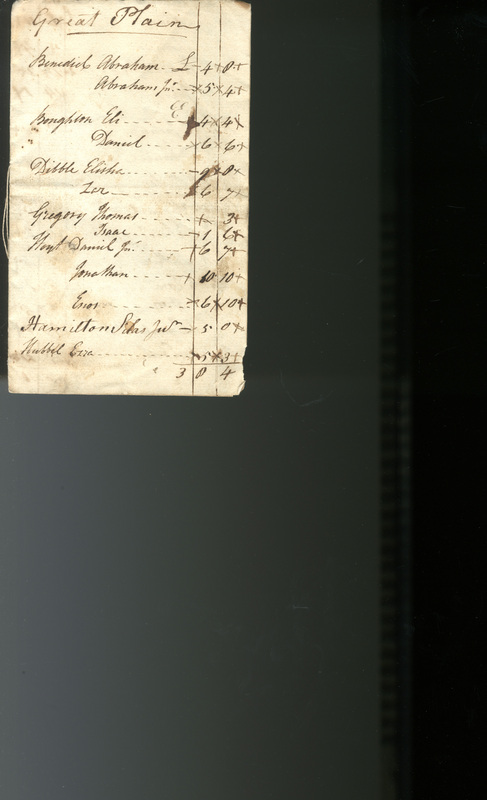 Great Plain
Benedict Abraham - £ - 4 + 8 +
Abraham Jur. - + 5 + 4 +
Boughton Eli - - - + 4 + 4 +
" Daniel - - - + 6 + 6 +
Dibble Elisha - 9 + 8 +
Zar 6 7 +
Gregory Thomas - - - + 3 +
Isaac - - + 1 6 +
Hoyt Daniel Jur. - - - + 6 7 +
Jonathan - - - + 10 10 +
Enos - - - + 6 + 10 +
Hamilton Silas Junr - 5 0 +
Hubbel Ezra + 5 + 3 +
3 8 4